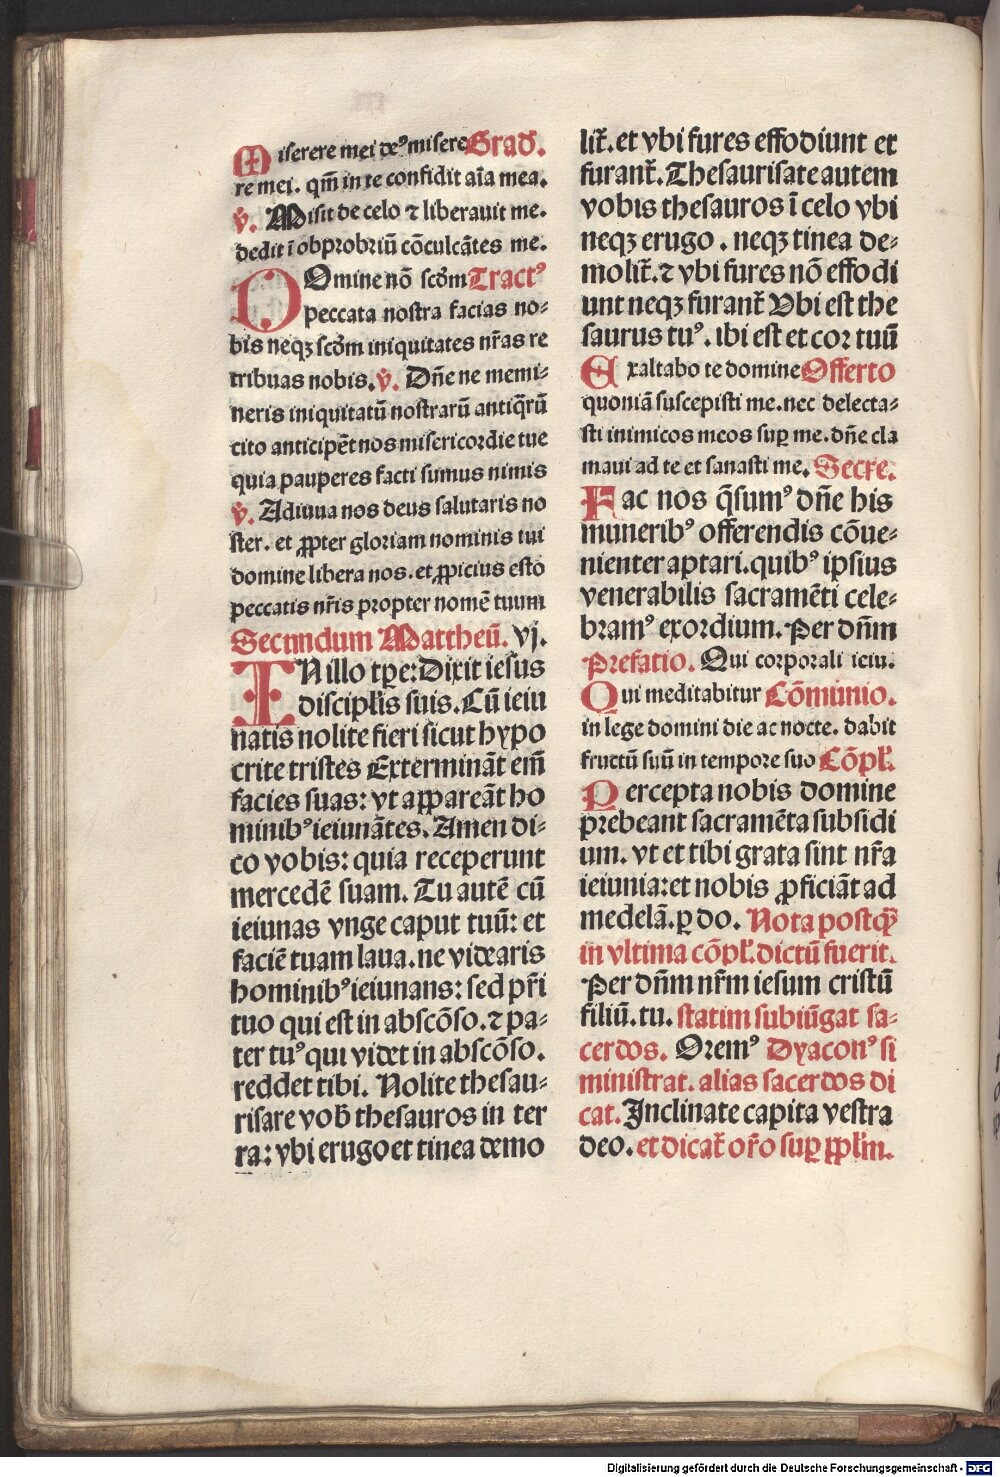 Miserere mei deꝰ misere Grad̃.
re mei. qm̃ in te confidit aĩa mea.
v̾. Misit de celo ⁊ liberauit me.
dedit ĩ obprobriũ cõculcãtes me.
DOmine nõ scd̃m Tractꝰ
peccata nostra facias no⸗
bis neqꝫ scd̃m iniquitates nr̃as re
tribuas nobis. v̾. Dñe ne memi⸗
neris iniquitatũ nostrarũ antiq̃rũ
cito anticipẽt nos misericordie tue
quia pauperes facti sumus nimis
v̾. Adiuua nos deus salutaris no
ster. et ꝓpter gloriam nominis tui
domine libera nos. et ꝓpicius esto
peccatis nr̃is propter nomẽ tuum
Secundum Mattheũ. vj.
IN illo tꝑe: Dixit iesus
discipl̃is suis. Cũ ieiu
natis nolite fieri sicut hypo
crite tristes Exterminãt em̃
facies suas: vt appareãt ho
minibꝰ ieiunãtes. Amen di⸗
co vobis: quia receperunt
mercedẽ suam. Tu autẽ cũ
ieiunas vnge caput tuũ: et
faciẽ tuam laua. ne videaris
hominibꝰ ieiunans: sed pr̃i
tuo qui est in abscõso. ⁊ pa⸗
ter tuꝰ qui videt in abscõso.
reddet tibi. Nolite thesau⸗
risare vob̃ thesauros in ter
ra: vbi erugo et tinea demo
lit̃. et vbi fures effodiunt et
furant̃. Thesaurisate autem
vobis thesauros ĩ celo vbi
neqꝫ erugo. neqꝫ tinea de⸗
molit̃. ⁊ vbi fures nõ effodi
unt neqꝫ furant̃ Vbi est the
saurus tuꝰ. ibi est et cor tuũ
Exaltabo te domine Offerto
quoniã suscepisti me. nec delecta⸗
sti inimicos meos suꝑ me. dñe cla
maui ad te et sanasti me. Secre.
Fac nos q̃sumꝰ dñe his
muneribꝰ offerendis cõue⸗
nienter aptari. quibꝰ ipsius
venerabilis sacramẽti cele⸗
bramꝰ exordium. Per dñm
Prefatio. Qui corporali ieiu.
Qui meditabitur Cõmunio.
in lege domini die ac nocte. dabit
fructũ suũ in tempore suo Cõpl̃.
Percepta nobis domine
prebeant sacramẽta subsidi
um. vt et tibi grata sint nr̃a
ieiunia: et nobis ꝓficiãt ad
medelã. ꝑ do. Nota postqꝫ̃
in vltima cõpl̃. dictũ fuerit.
Per dñm nr̃m iesum cristũ
filiũ. tu. statim subiũgat sa⸗
cerdos. Oremꝰ Dyaconꝰ si
ministrat. alias sacerdos di
cat. Inclinate capita vestra
deo. et dicat̃ or̃o suꝑ ppl̃m.
Digitalisierung gefördert durch die Deutsche Forschungsgemeinschaft - DFG